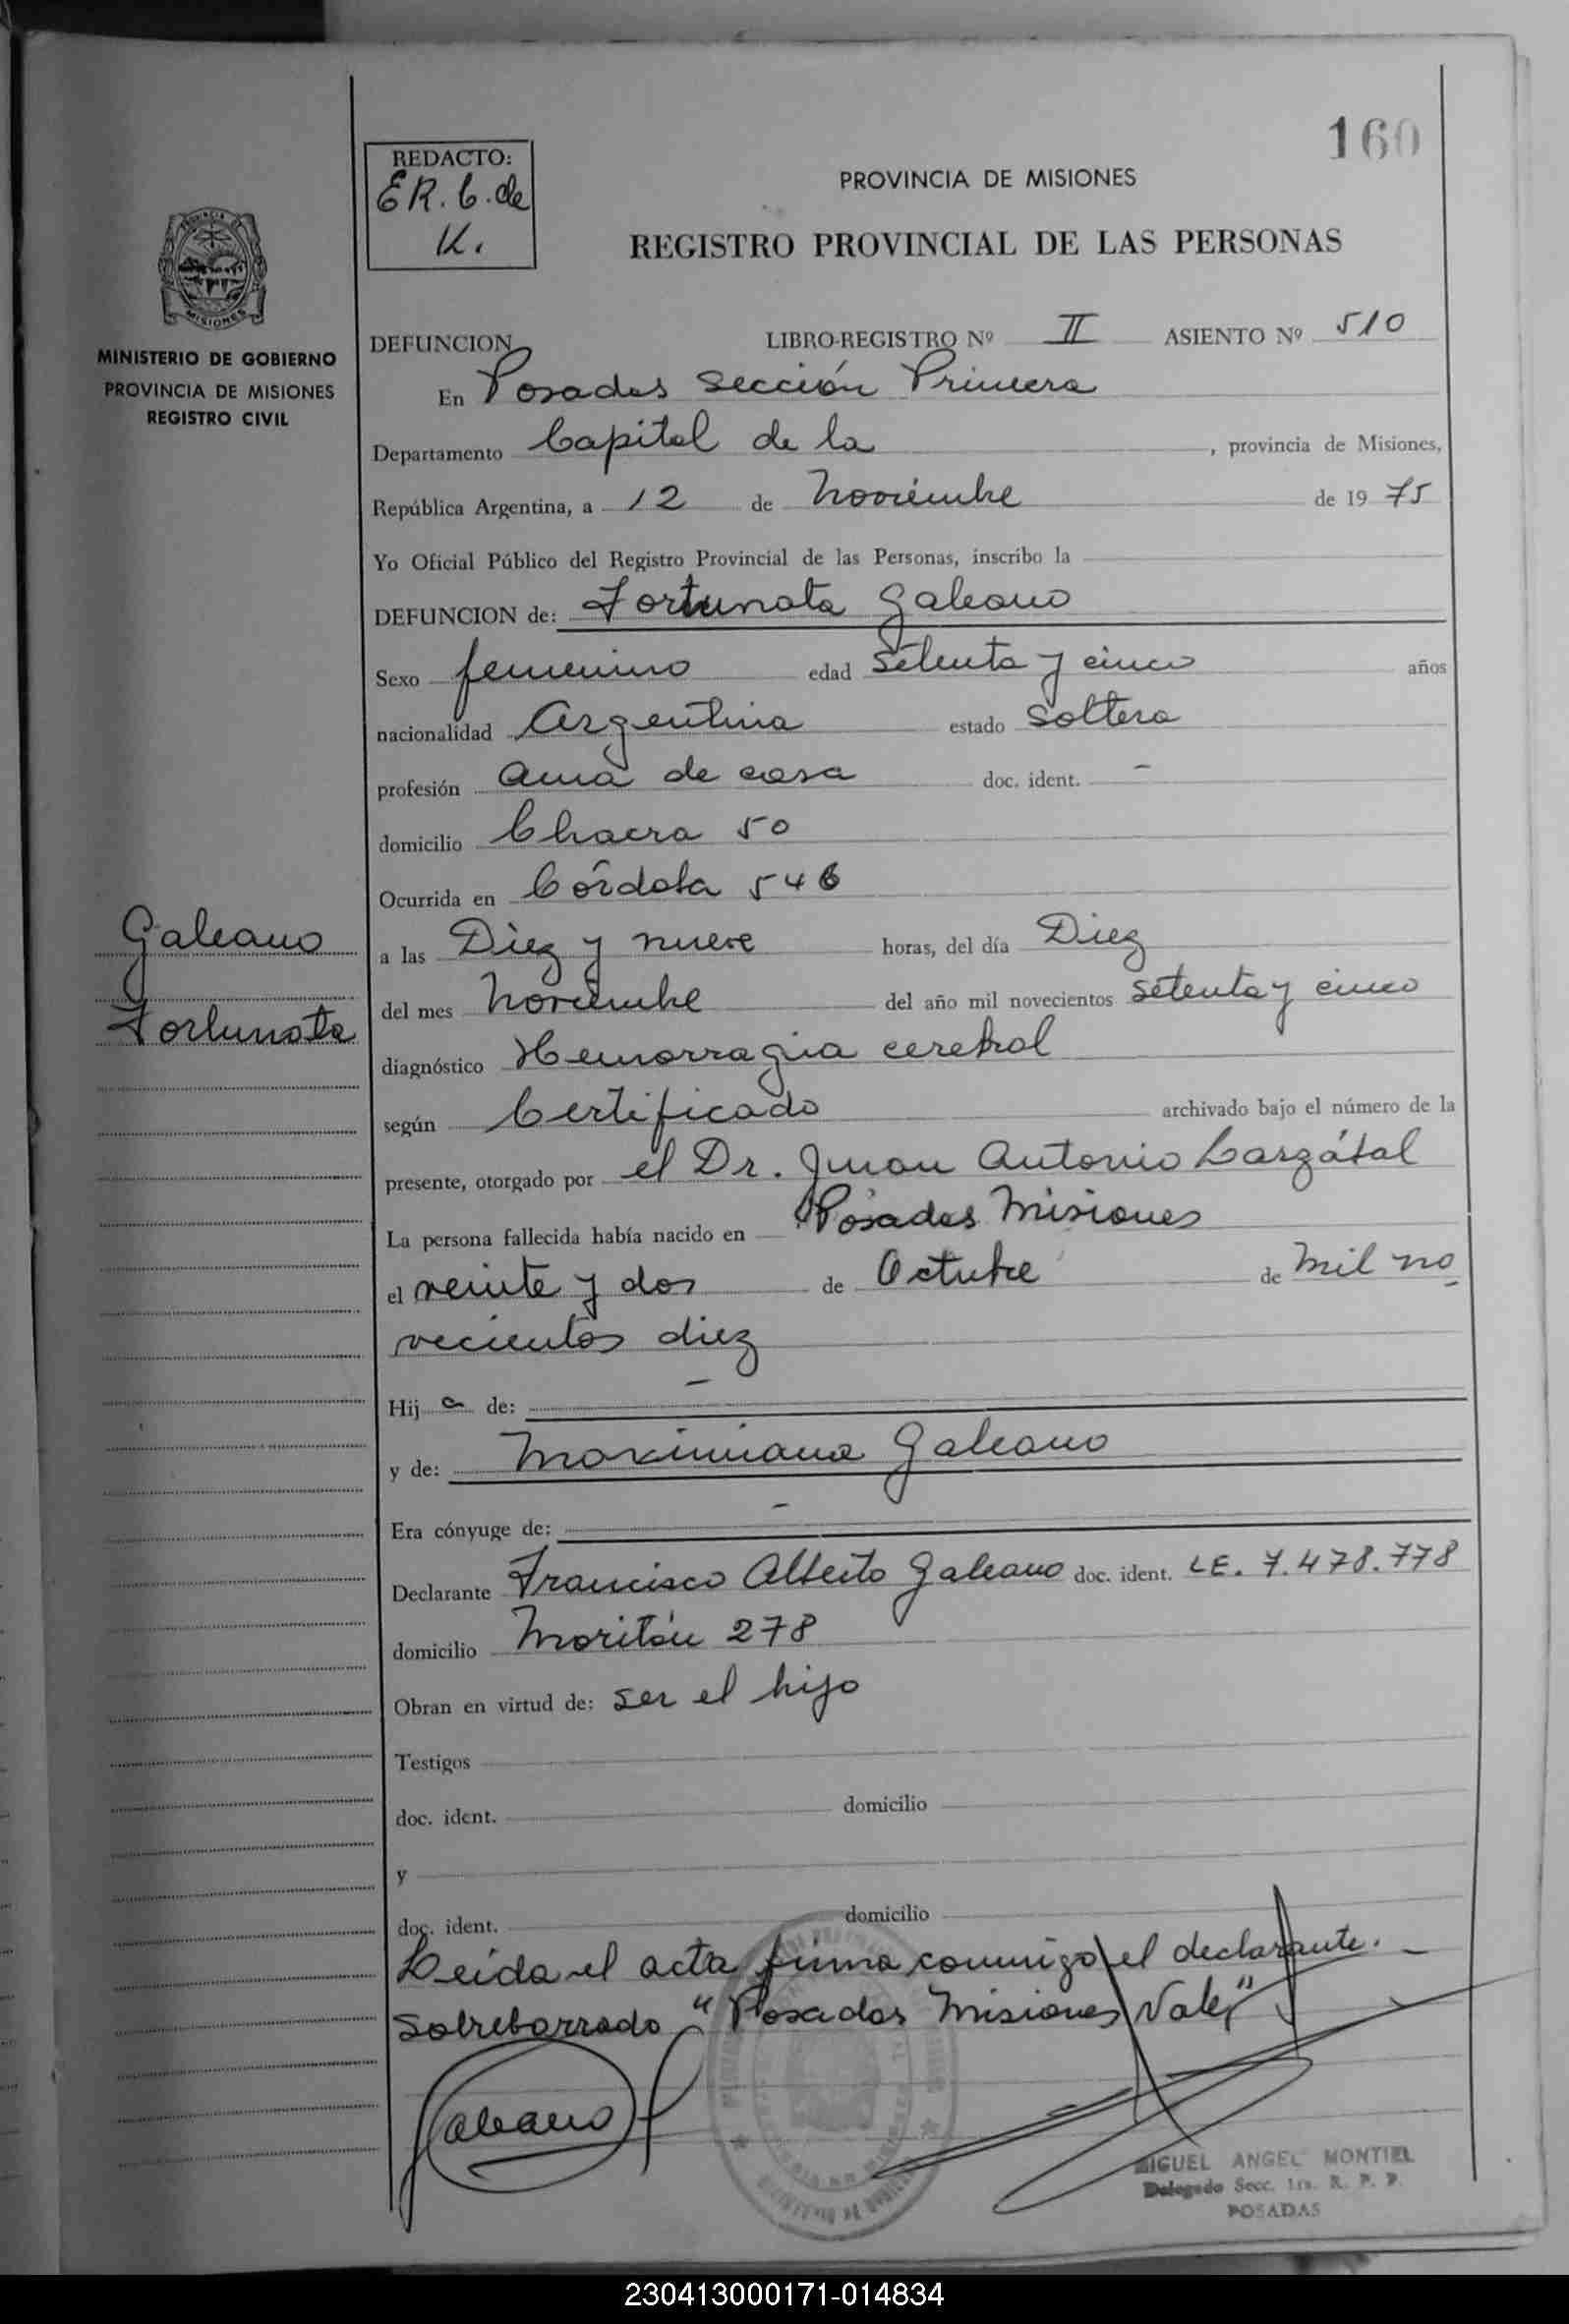 160
REDACTO:
E R. C. de
K.
PROVINCIA DE MISIONES
REGISTRO PROVINCIAL DE LAS PERSONAS
MISIONES
MINISTERIO DE GOBIERNO
PROVINCIA DE MISIONES
REGISTRO CIVIL
DEFUNCION LIBRO-REGISTRO Nº II ASIENTO Nº 510
En Posadas Sección Primera
Departamento Capital de la , provincia de Misiones,
República Argentina, a 12 de Noviembre de 1975
Yo Oficial Público del Registro Provincial de las Personas, inscribo la
DEFUNCION de: Fortunata Galeano
Sexo femenino edad Setenta y cinco años
nacionalidad Argentina estado Soltera
profesión ama de casa doc. ident. -
domicilio Chacra 50
Ocurrida en Córdoba 546
Galeano
Fortunata
a las Diez y nueve horas, del día Diez
del mes Noviembre del año mil novecientos Setenta y cinco
diagnóstico Hemorragia cerebral
según Certificado archivado bajo el número de la
presente, otorgado por el Dr. Juan Antonio
La persona fallecida había nacido en Posadas Misiones
el veinte y dos de Octubre de mil no
vecientos diez
Hija de: -
y de: Maximiana Galeano
Era cónyuge de: -
Declarante Francisco Alberto Galeano doc. ident. LE. 7.478.778
domicilio 278
Obran en virtud de: ser el hijo
Testigos
doc. ident. domicilio
y
doc. ident. domicilio
Leida el acta firma conmigo el declarante. -
Sobreborrado "Posadas Misiones Vale"
Galeano
MIGUEL ANGEL MONTIEL
Delegado Secc. 1ra. R. P. P.
POSADAS
230413000171-014834